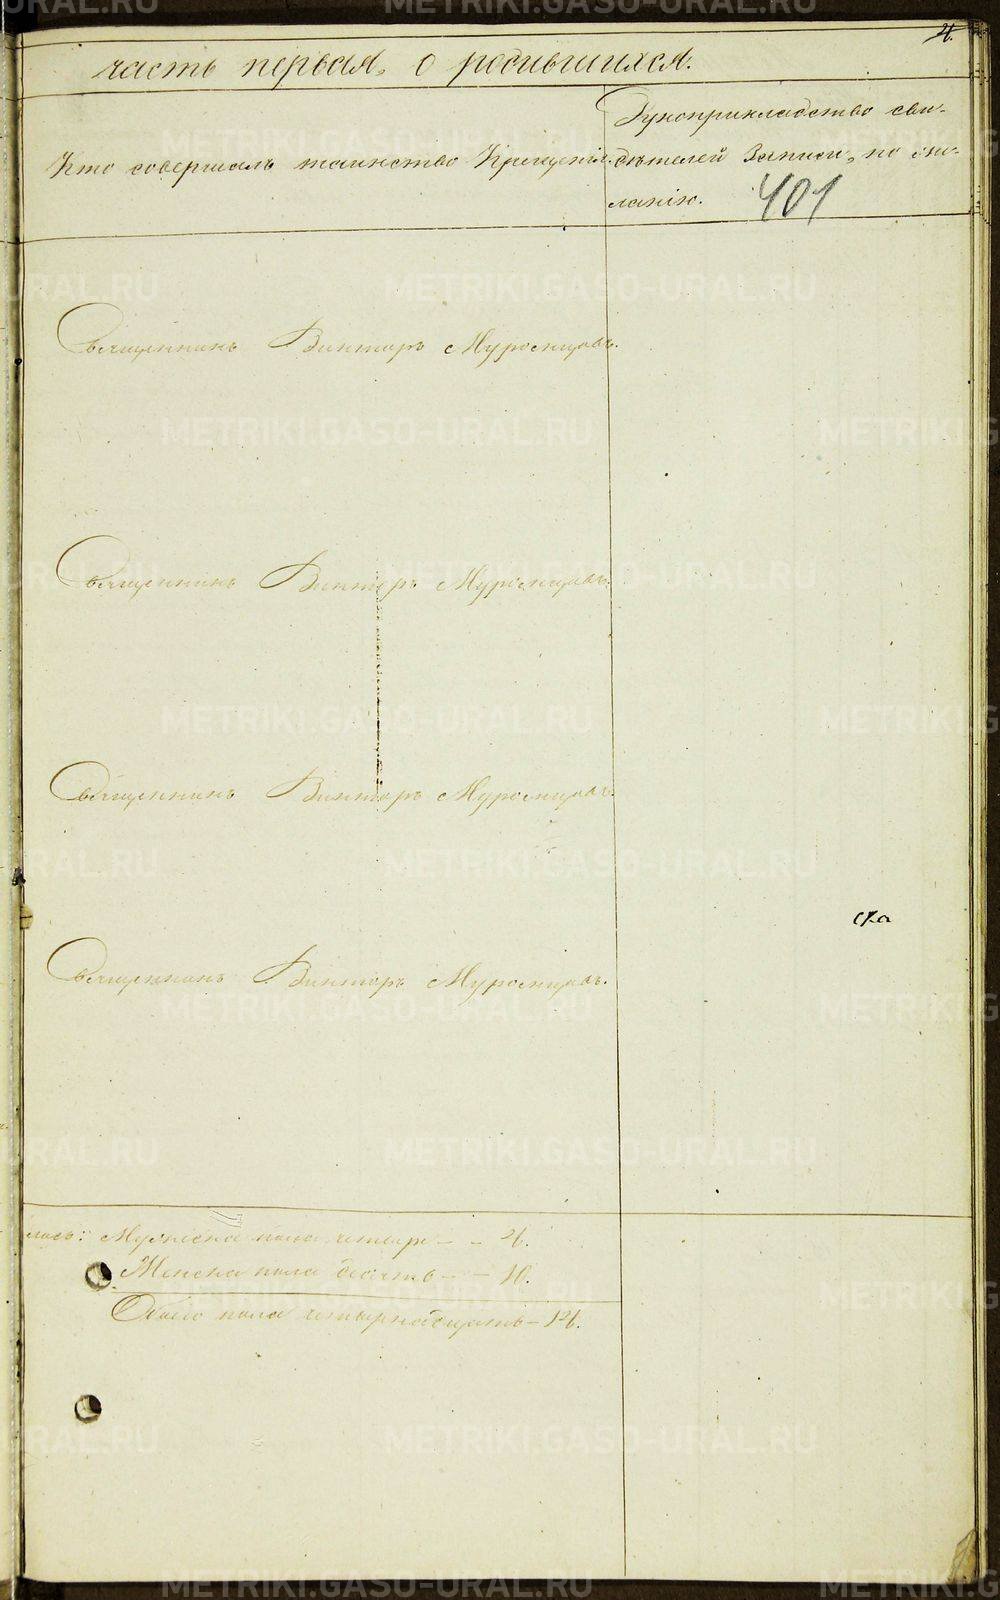 4.
часть первая, о родившихся.
Рукоприкладство сви-
Кто совершалъ таинство Крещенія.
дѣтелей записи, по же-
ланію.
401
Священникъ Викторъ Муромцовъ.
Священникъ Викторъ Муромцовъ.
Священникъ Викторъ Муромцовъ.
Священникъ Викторъ Муромцовъ.
лось: Мужеска пола четыре - - 4.
Женска пола десять - - 10.
Обоего пола четырнадцать - 14.
METRIKI.GASO-URAL.RU